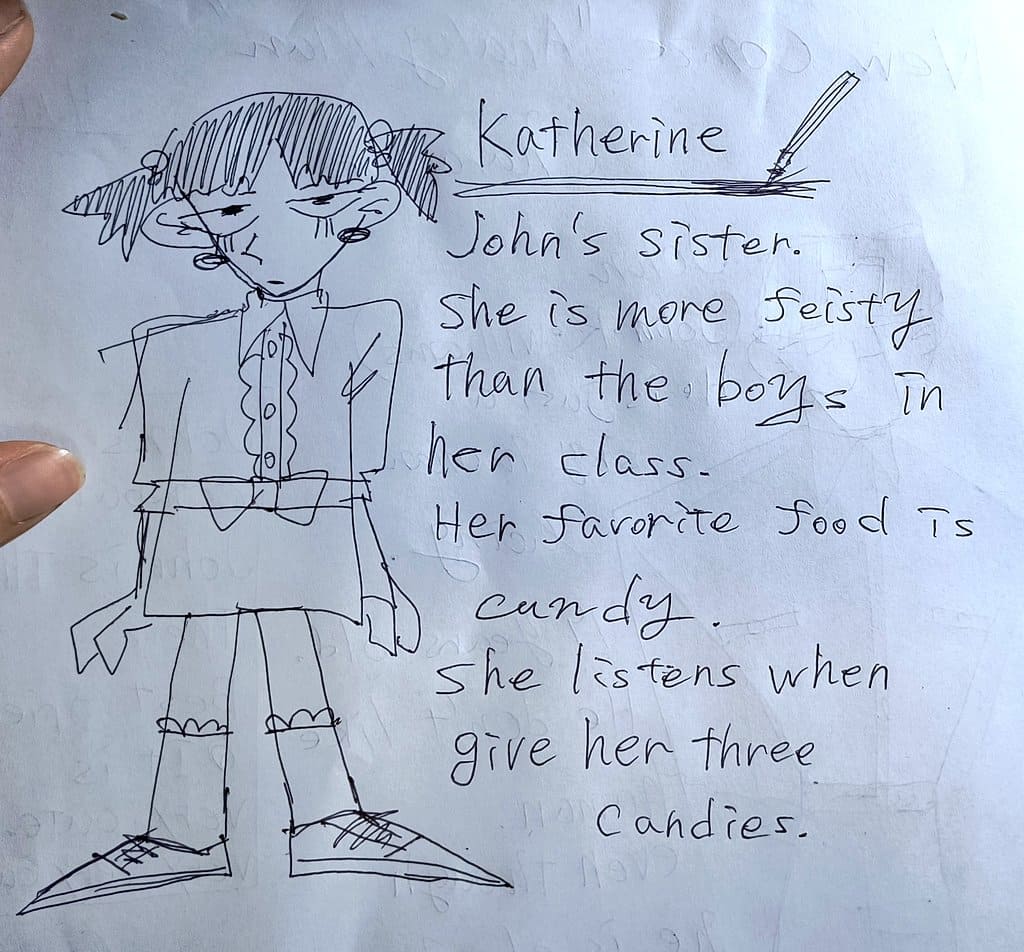 Katherine
John's sister.
She is more feisty
than the boys in
her class.
Her favorite food is
candy.
She listens when
give her three
candies.